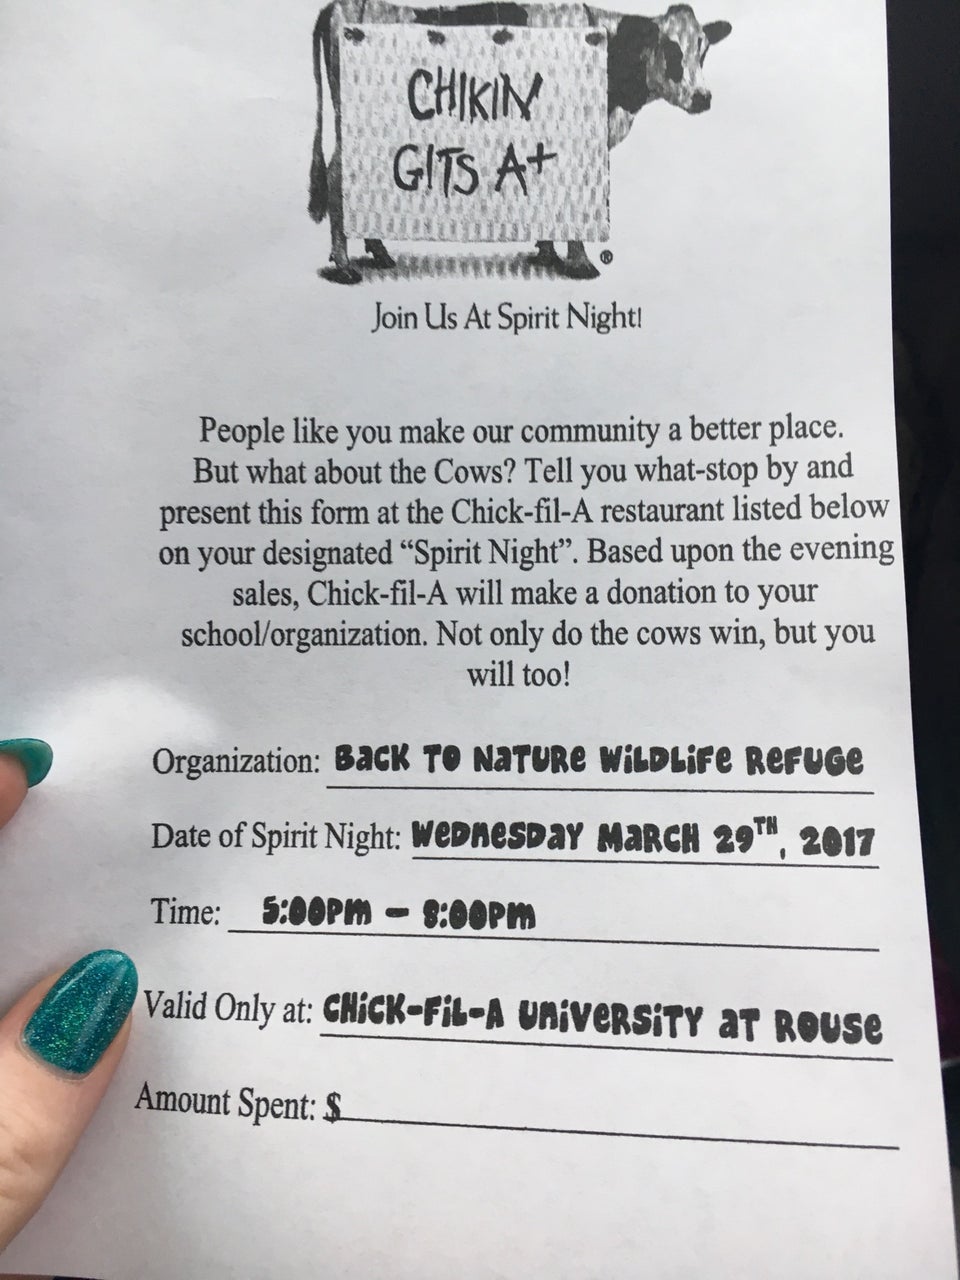 CHIKIN
GITS A+
®
Join Us At Spirit Night!
People like you make our community a better place.
But what about the Cows? Tell you what-stop by and
present this form at the Chick-fil-A restaurant listed below
on your designated “Spirit Night”. Based upon the evening
sales, Chick-fil-A will make a donation to your
school/organization. Not only do the cows win, but you
will too!
Organization: BACK TO NATURE WILDLIFE REFUGE
Date of Spirit Night: WEDNESDAY MARCH 29TH, 2017
Time: 5:00PM - 8:00PM
Valid Only at: CHICK-FIL-A UNIVERSITY AT ROUSE
Amount Spent: $